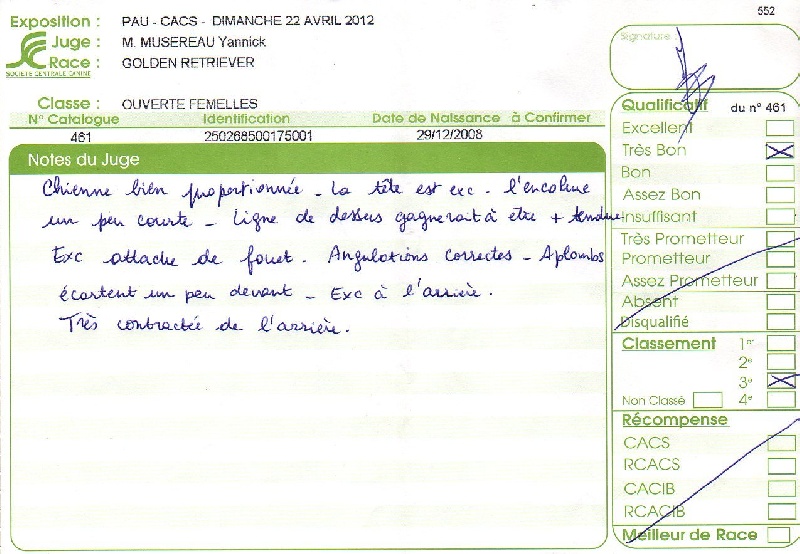 552
Exposition : PAU - CACS - DIMANCHE 22 AVRIL 2012
Juge : M. MUSEREAU Yannick
Race : GOLDEN RETRIEVER
SOCIÉTÉ CENTRALE CANINE
Classe : OUVERTE FEMELLES
N° Catalogue Identification Date de Naissance à Confirmer
461 250268500175001 29/12/2008
Notes du Juge
Chienne bien proportionnée - La tête est exc. l'encolure
un peu courte - Ligne de dessus gagnerait à etre + tendue
Exc attache de fouet. Angulations correctes - Aplombs
écartent un peu devant - Exc à l'arrière.
Très contractée de l'arrière.
Signature :
Qualificatif du n° 461
Excellent
Très Bon
Bon
Assez Bon
Insuffisant
Très Prometteur
Prometteur
Assez Prometteur
Absent
Disqualifié
Classement 1er
2e
3e
Non Classé 4e
Récompense
CACS
RCACS
CACIB
RCACIB
Meilleur de Race